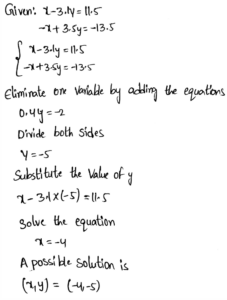 Given: x-3.1y=11.5
-x+3.5y=-13.5
x-3.1y=11.5
-x+3.5y=-13.5
Eliminate one variable by adding the equations
0.4y=-2
Divide both sides
y=-5
Substitute the value of y
x-3.1x(-5)=11.5
Solve the equation
x=-4
A possible Solution is
(x,y) = (-4,-5)